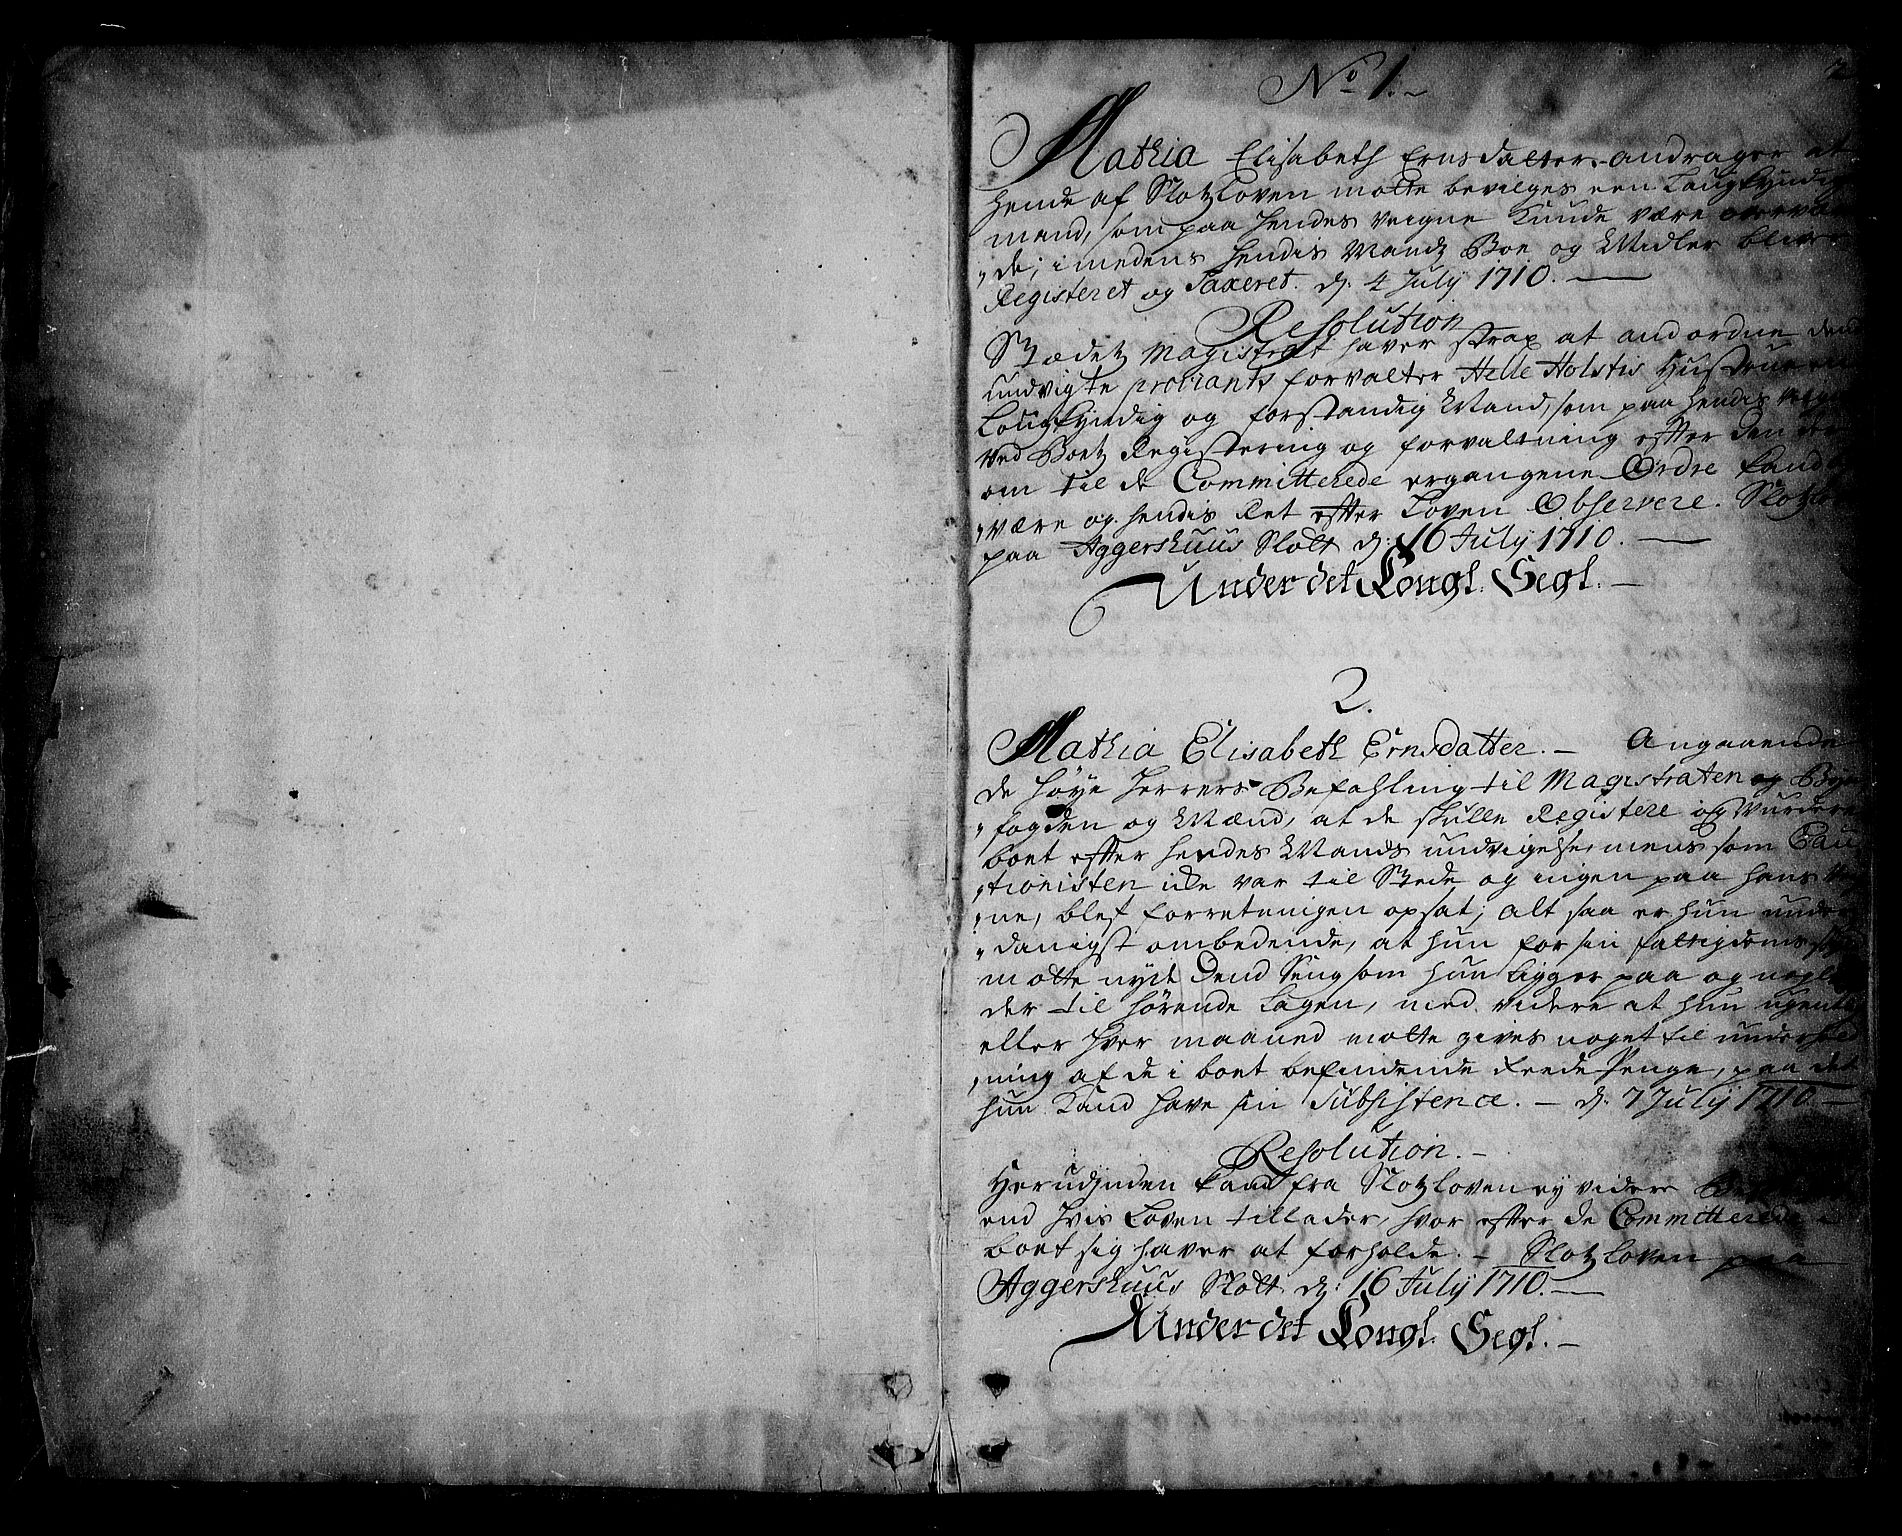 No 1.
2
Mathia Elisabeth Ernsdatter andrager at
hende af Slotzloven motte bevilges een Laugkyndig
mand, som paa hendes veigne kunde være overvæ
de, imedens hendis Mandz Boe og Midler bliver
Registeret og Taxeret. d: 4 July 1710. —
Resolution
Stædetz Magistrat haver strax at andordne dend
undvigte proviants forvalter Helle Holstis Hustrue en
Lougkyndig og forstandig Mand, som paa hendis veigne
ved Boetz Registering og forvaltning efter den der
om til de Committerede ergangene Ordre kand
være og hendis Ret efter Loven Observere. Slotzloven
paa Aggershuus Slott d: 16 July 1710. —
Under det Kongl. Segl. —
2.
Mathia Elisabeth Ernsdatter. — Angaaende
de høye Herrers Befahling til Magistraten og Bye
fogden og Mænd, at de skulle Registere og Vurdere
boet efter hendes Mands undvigelse, mens som Cau
tionisten icke var til Stede og ingen paa hans vei
ne, blef forretningen opsat; alt saa er hun under
danigst ombedende, at hun for sin fattigdoms skyld
motte nyde Dend Seng som hun ligger paa og nogle
der til hørende Lagen, med videre at hun ugentl
eller hver maaned motte gives noget til underhold
ning af de i boet befindende reede Penge, paa det
hun kand have sin Subsistence. — d: 7 July 1710. —
Resolution. —
Herudjnden kand fra Slotzloven ey videre
end hvis Loven tillader, hvor efter de Committerede i
boet sig haver at forholde. — Slotzloven paa
Aggershuus Slott d: 16 July 1710. —
Under det Kongl. Segl. —